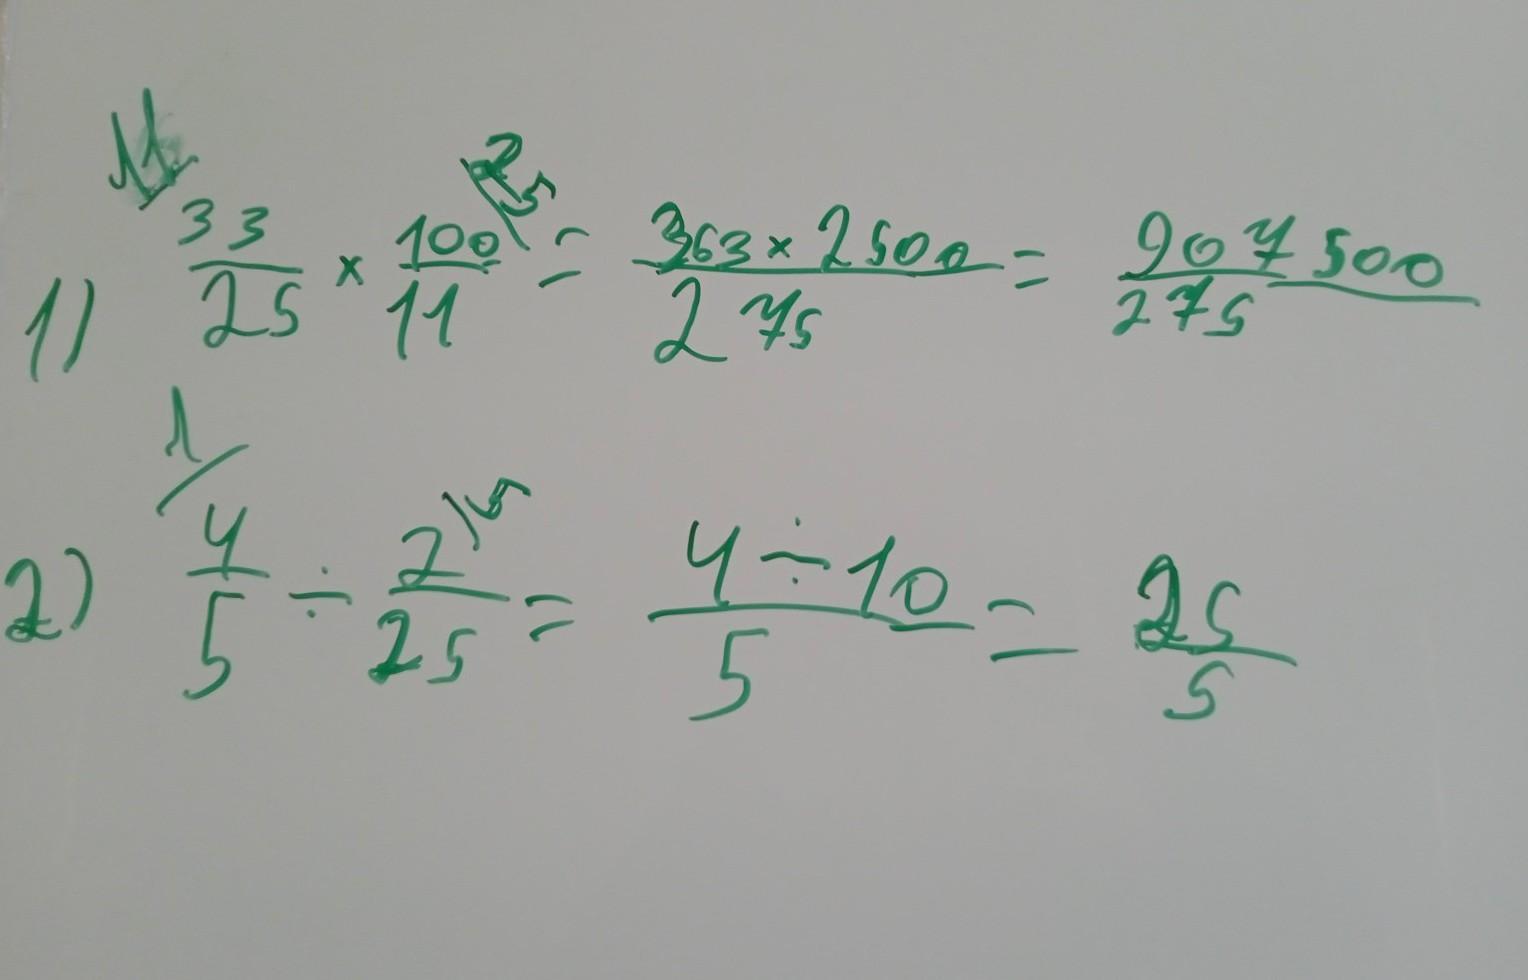 1) 11\ 33/25 × 100\25/11 = 363 × 2500/275 = 907500/275
2) 1/ 4/5 ÷ 2\5/25 = 4 ÷ 10/5 = 25/5